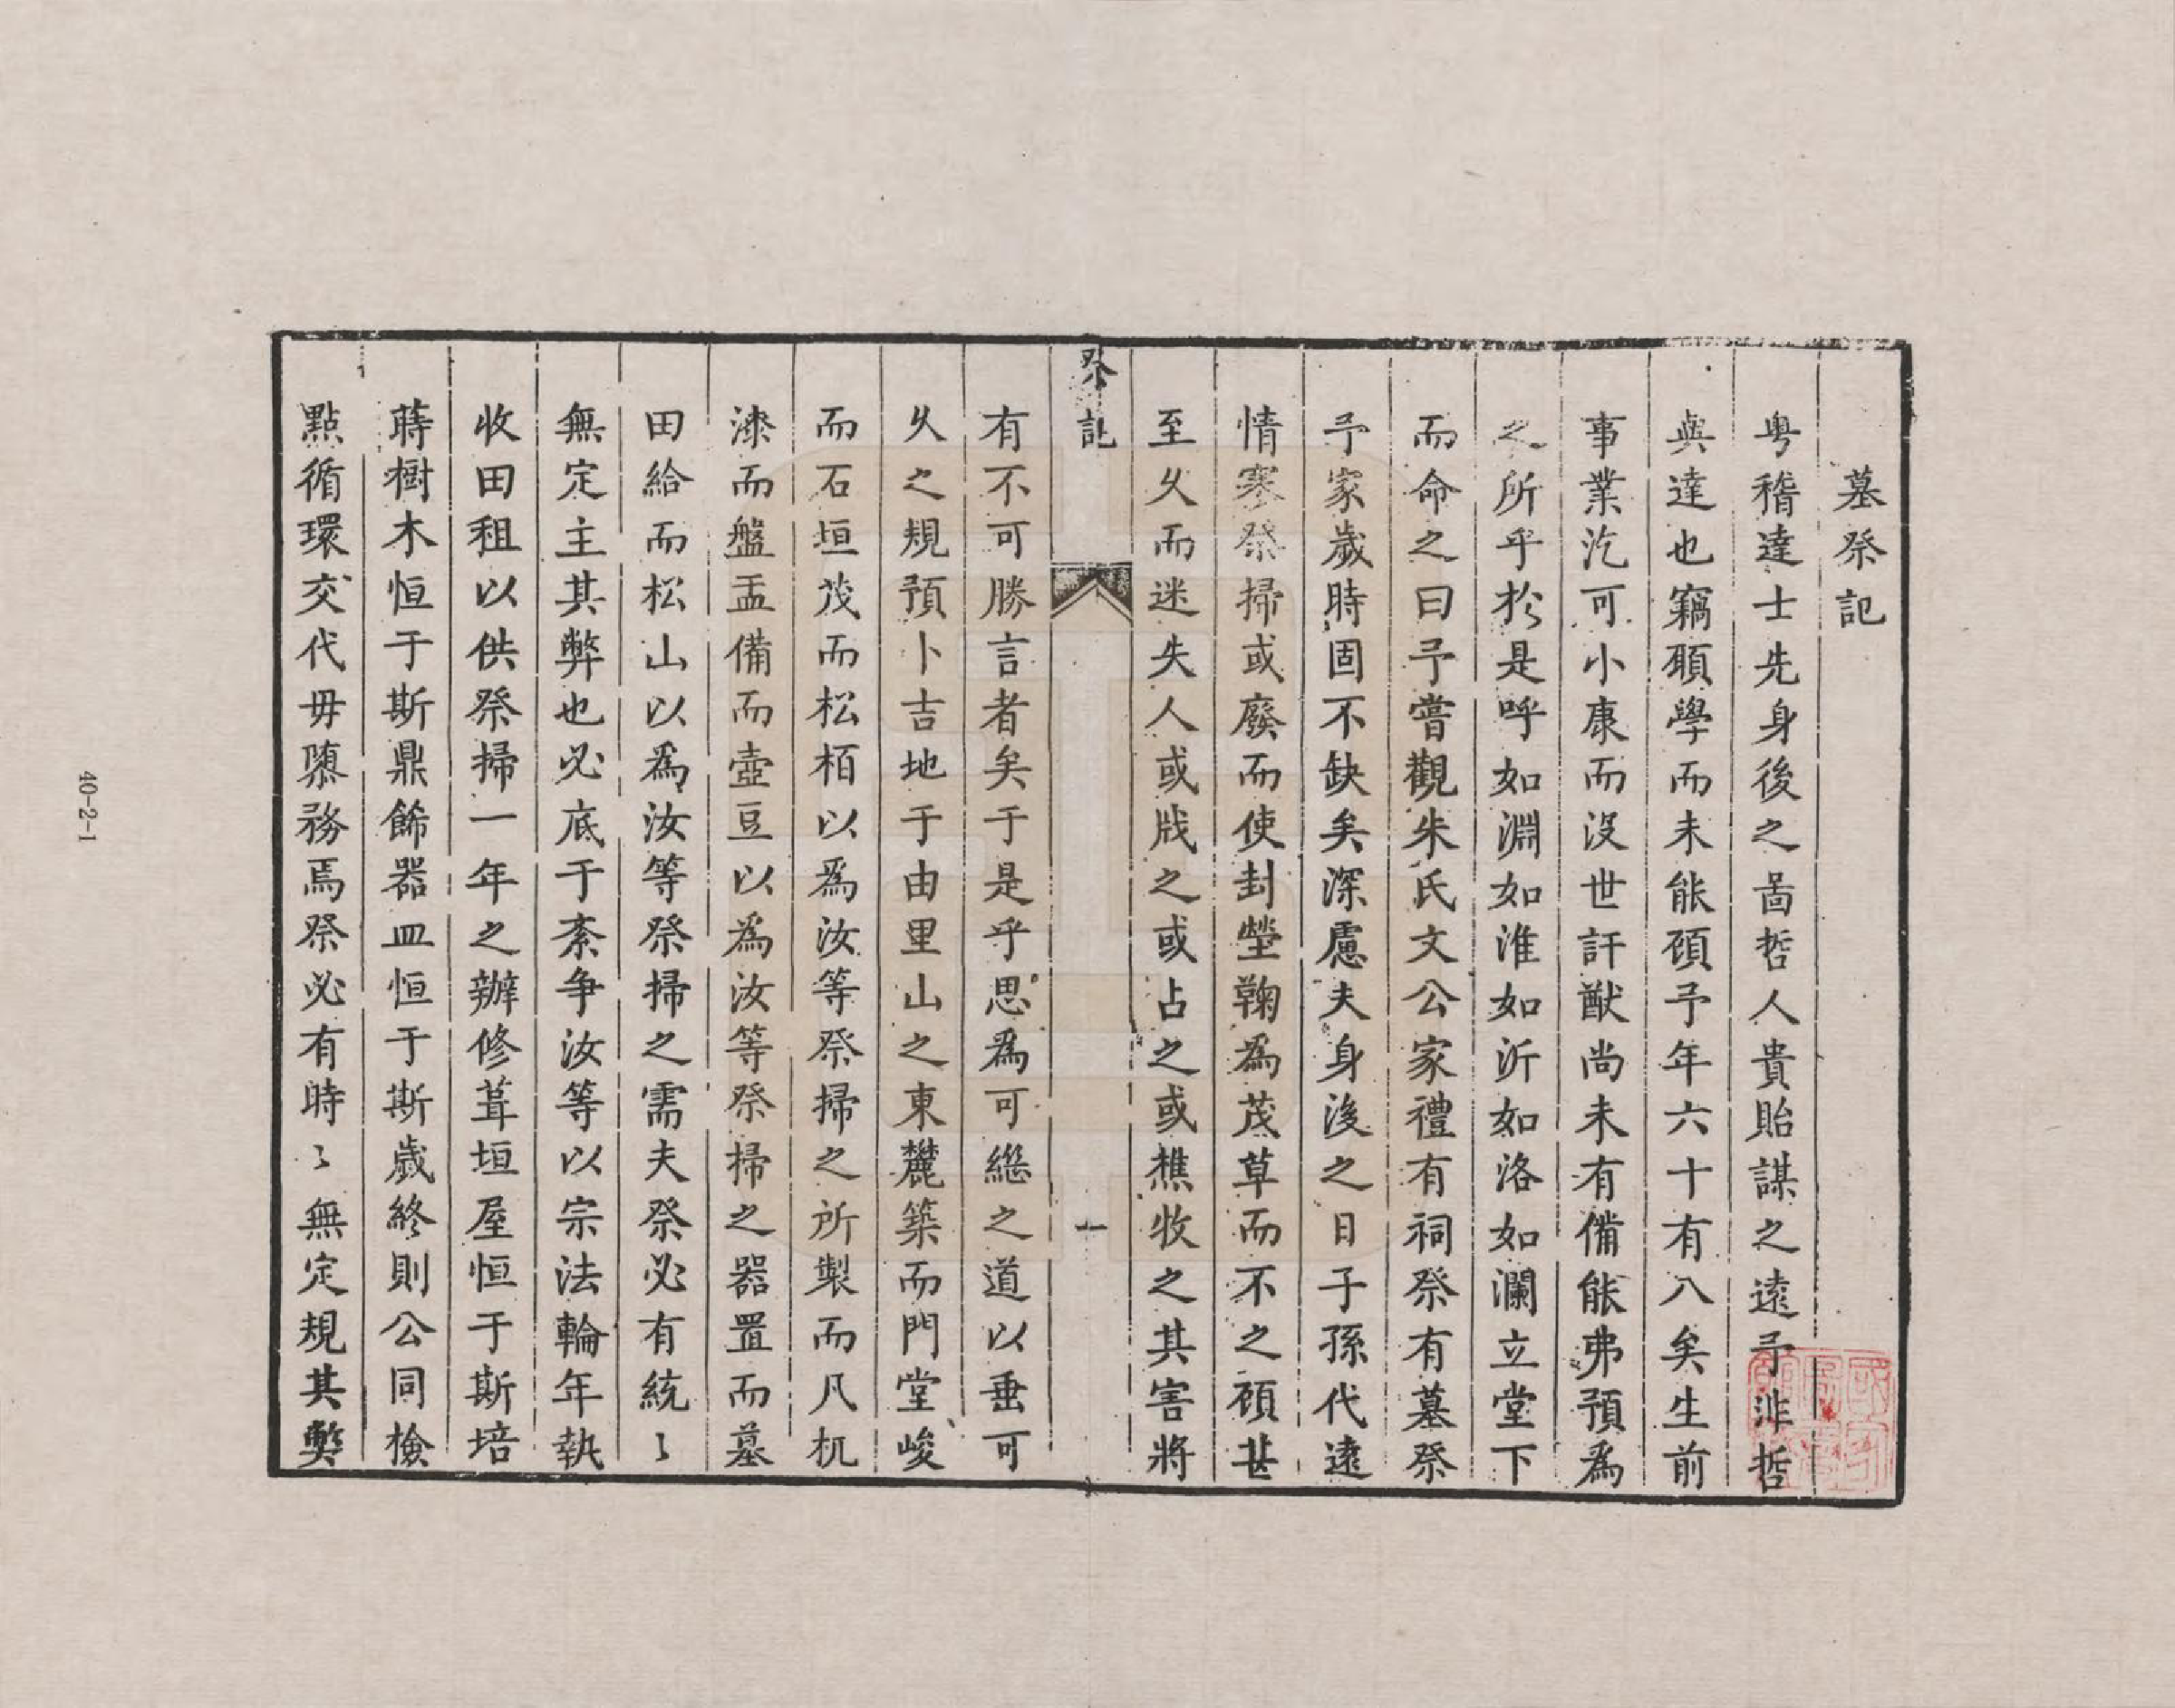 墓祭記
粤稽達士先身後之啚哲人貴貽謀之遠予非哲
與達也竊願學而未能碩予年六十有八矣生前
事業汔可小康而沒世訏猷尚未有備能弗預為
之所乎於是呼如淵如淮如沂如洛如瀾立堂下
而命之曰予嘗觀朱氏文公家禮有祠祭有墓祭
予家歲時固不缺矣深慮夫身後之日子孫代遠
情寒祭掃或廢而使封塋鞠為茂草而不之碩甚
至乆而迷失人或戕之或占之或樵牧之其害將
祭記
一
有不可勝言者矣于是乎思為可繼之道以垂可
乆之規預卜吉地于由里山之東麓築而門堂峻
而石垣茂而松栢以為汝等祭掃之所製而凡杌
漆而盤盂備而壺豆以為汝等祭掃之器置而墓
田給而松山以為汝等祭掃之需夫祭必有統〻
無定主其弊也必底于紊争汝等以宗法輪年執
收田租以供祭掃一年之辦修葺垣屋恒于斯培
蒔樹木恒于斯鼎飾器皿恒于斯歲終則公同檢
點循環交代毋隳務焉祭必有時〻無定規其弊
40-2-1